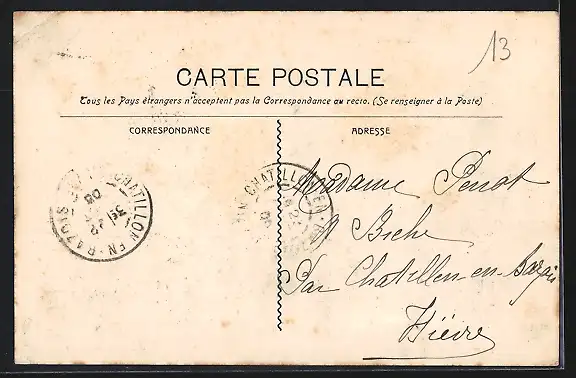 13
CARTE POSTALE
Tous les Pays étrangers n'acceptent pas la Correspondance au recto. (Se renseigner à la Poste)
CORRESPONDANCE
ADRESSE
CHATILLON EN
CHATILLON EN
Madame Penot
à Biche
Par Chatillon en Bazois
Nièvre